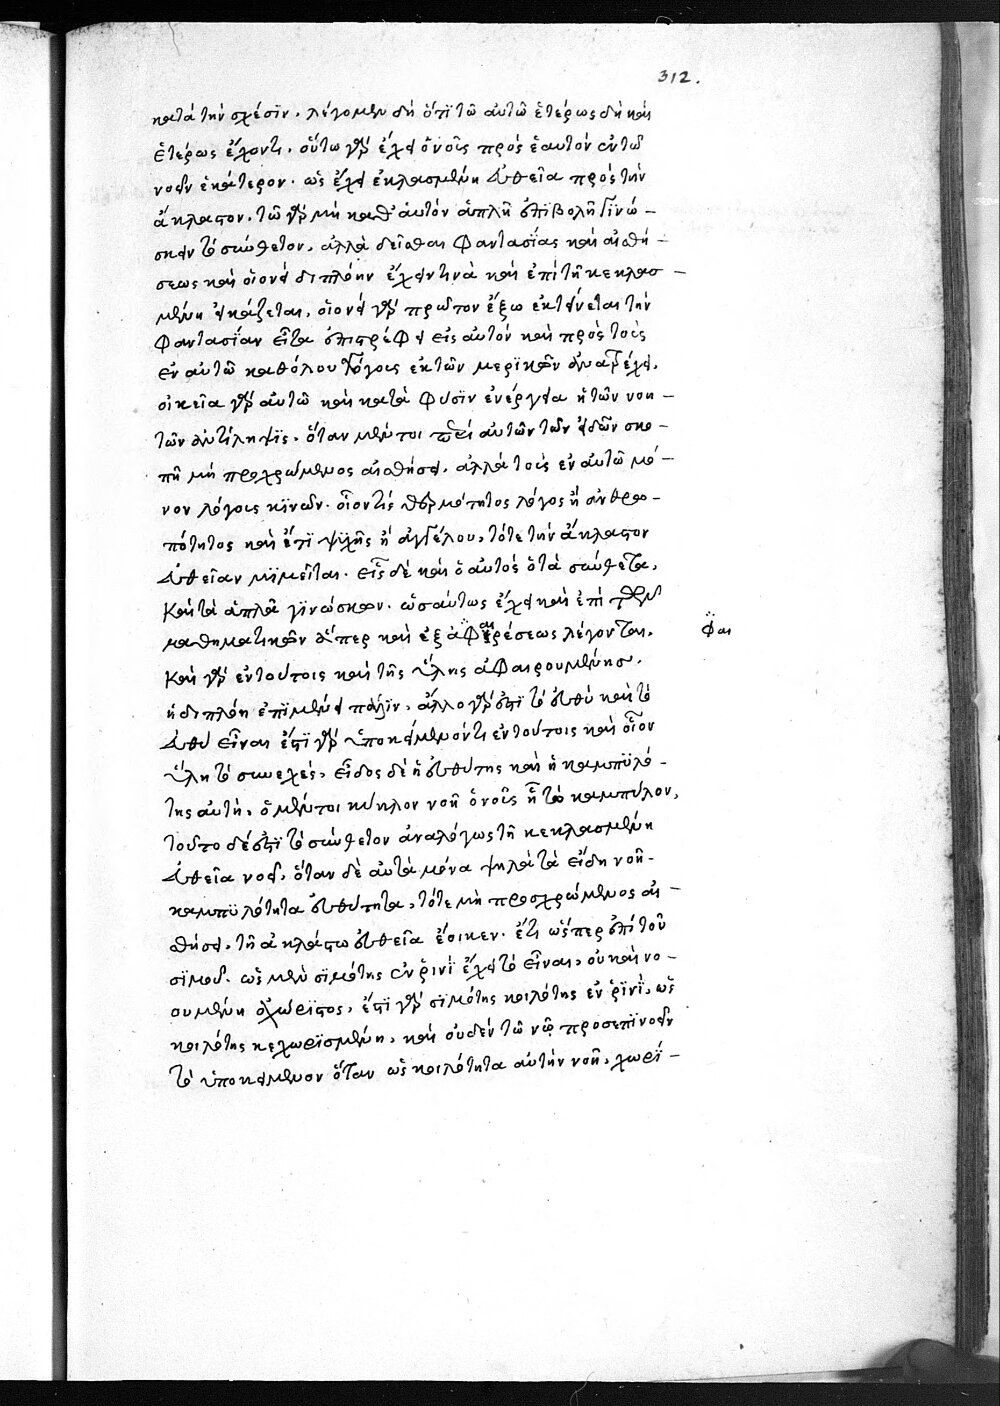 312.
κατὰ τὴν σχέσϊν. λέγομεν δὴ ὅτι τῶ αὐτῶ ἑτέρως δὴ καὶ
ἑτέρως ἔχοντι. οὕτω γὰρ ἔχει ὁ νοῦς πρὸς ἑαυτὸν ἐν τῶ
νοεῖν ἑκάτερον. ὡς ἔχει ἐκλασμένη εὐθεῖα πρὸς τὴν
ἄκλαστον. τῶ γὰρ μὴ καθ' αὑτὸν ἁπλῆ ἐπϊβολῆ γϊνώ-
σκειν τὸ σύνθετον, ἀλλὰ δεῖσθαι φαντασΐας καὶ αἰσθή-
σεως καὶ οἱονεὶ διπλόην ἔχειν τινὰ καὶ ἐπὶ τῆ κεκλασ-
μένη εἰκάζεται, οἱονεὶ γὰρ πρῶτον ἔξω ἐκτείνεται τὴν
φαντασΐαν εἶτα ἐπιστρέφει εἰς αὑτὸν καὶ πρὸς τοὺς
ἐν αὑτῶ καθόλου λόγους ἐκ τῶν μερϊκῶν ἀνατρέχει.
οἰκεία γὰρ αὐτῶ καὶ κατὰ φύσϊν ἐνέργεια ἡ τῶν νοη-
τῶν ἀντίληψϊς. ὅταν μέντοι περὶ αὐτῶν τῶν εἰδῶν σκο-
πῆ μὴ προχρώμενος αἰσθήσει. ἀλλὰ τοὺς ἐν αὑτῶ μό-
νον λόγους κϊνῶν. οἷον τίς θερμότητος λόγος ἢ ἀνθρω-
πότητος καὶ ἔτϊ ψϋχῆς ἢ ἀγγέλου, τότε τὴν ἄκλαστον
εὐθεῖαν μϊμεῖται. εἷς δὲ καὶ ὁ αὐτὸς ὁ τὰ σύνθετα,
καὶ τὰ ἁπλᾶ γϊνώσκων. ὡσαύτως ἔχει καὶ ἐπὶ τῶν
μαθηματικῶν ἅπερ καὶ ἐξ ἀφαιρέσεως λέγονται. φαι
καὶ γὰρ ἐν τούτοις καὶ τῆς ὕλης ἀφαιρουμένης.
ἡ διπλόη ἐπϊμένει πάλϊν. ἄλλο γάρ ἐστϊ τὸ εὐθὺ καὶ τὸ
εὐθεῖ εἶναι ἔστϊ γὰρ ὑποκείμενόν τι ἐν τούτοις καὶ οἷον
ὕλη τὸ συνεχές, εἶδος δὲ ἡ εὐθύτης καὶ ἡ καμπϋλό-
της αὐτή. ὁ μέντοι κύκλον νοῆ ὁ νοῦς ἢ τὸ καμπύλον,
τοῦτο δέ ἐστϊ τὸ σύνθετον ἀναλόγως τῆ κεκλασμένη
εὐθεῖα νοεῖ, ὅταν δὲ αὐτὰ μόνα ψιλὰ τὰ εἴδη νοῆ.
καμπϋλότητα εὐθύτητα, τότε μὴ προσχρώμενος αἰ-
σθήσει. τῆ ἀκλάστω εὐθεῖα ἔοικεν. ἔτι ὥσπερ ἐπὶ τοῦ
σϊμοῦ. ὡς μὲν σϊμότης ἐν ῥϊνὶ ἔχει τὸ εἶναι, οὐκ αὖ νο-
ουμένη ἀχώρϊστος, ἔστϊ γὰρ σϊμότης κοιλότης ἐν ῥϊνΐ, ὡς
κοιλότης κεχωρϊσμένη, καὶ οὐδὲν τῶ νῶ προσεπϊνοεῖν
τὸ ὑποκείμενον ὅταν ὡς κοιλότητα αὐτὴν νοῆ, χωρΐ-